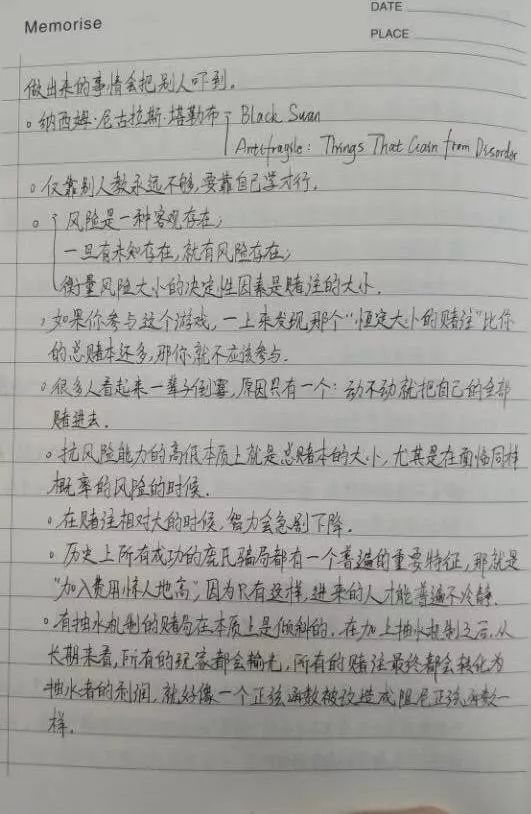 Memorise
DATE
PLACE
做出来的事情会把别人吓到。
纳西姆·尼古拉斯·塔勒布 Black Swan
Antifragile: Things That Gain from Disorder
仅靠别人教永远不够,要靠自己学才行。
风险是一种客观存在;
一旦有未知存在,就有风险存在;
衡量风险大小的决定性因素是赌注的大小.
如果你参与这个游戏,一上来发现,那个“恒定大小的赌注”比你
的总赌本还多,那你就不应该参与.
很多人看起来一辈子倒霉,原因只有一个:动不动就把自己的全部
赌进去.
抗风险能力的高低本质上就是总赌本的大小,尤其是在面临同样
概率的风险的时候.
在赌注相对大的时候,智力会急剧下降.
历史上所有成功的庞氏骗局都有一个普遍的重要特征,那就是
“加入费用惊人地高”,因为只有这样,进来的人才能普遍不冷静.
有抽水机制的赌局在本质上是倾斜的,在加上抽水机制之后,从
长期来看,所有的玩家都会输光,所有的赌注最终都会转化为
抽水者的利润,就好像一个正弦函数被改造成阻尼正弦函数一
样.